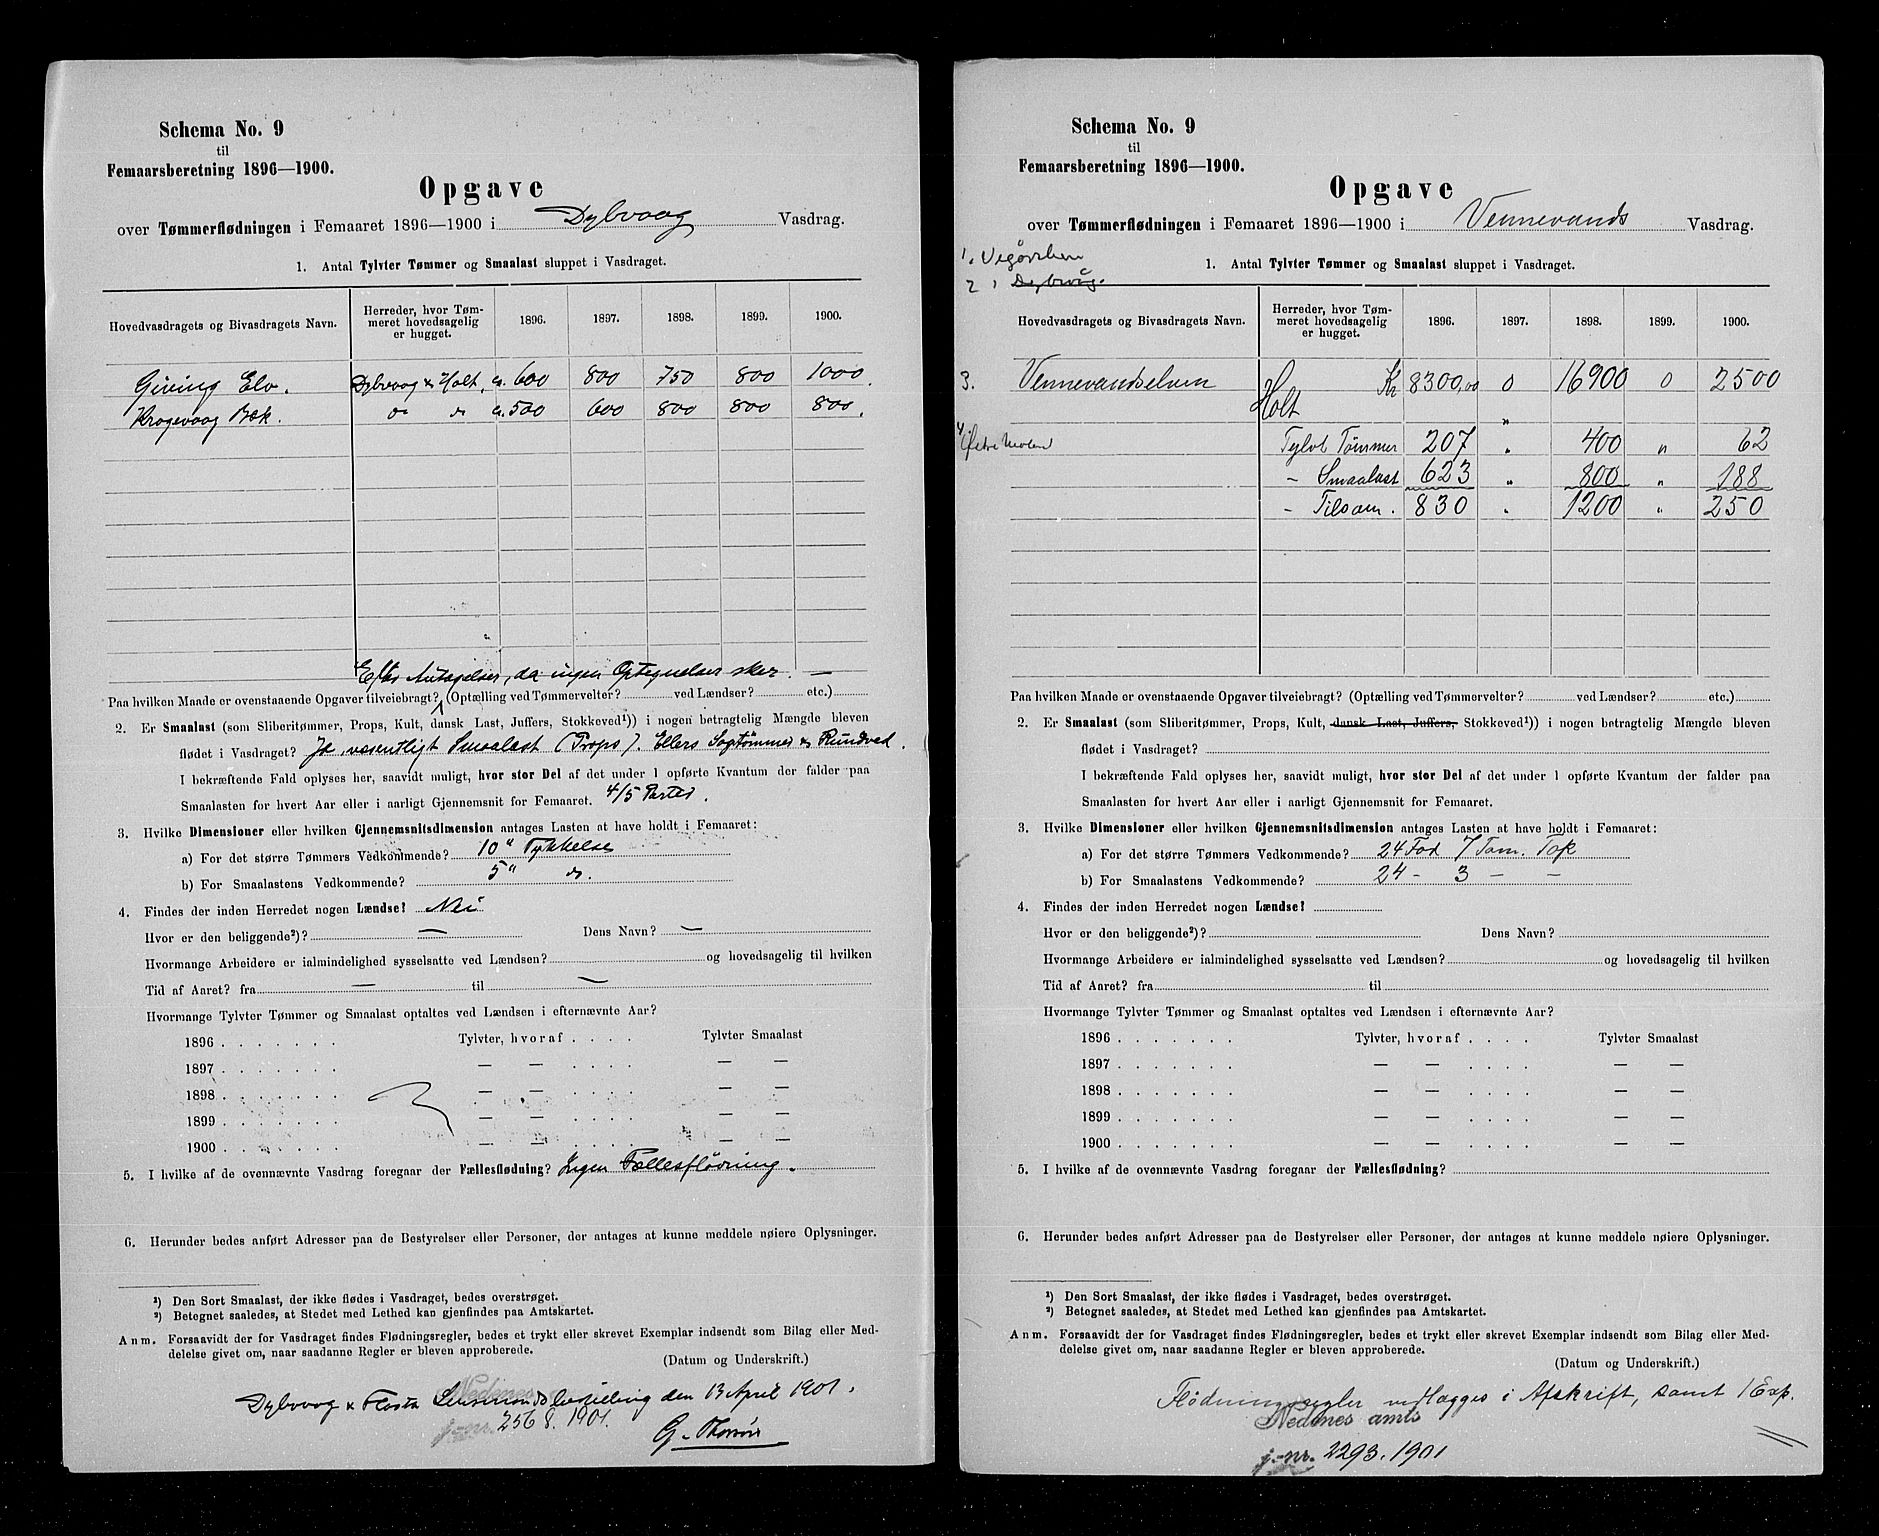 Schema No. 9
til
Femaarsberetning 1896—1900.
Opgave
over Tømmerflødningen i Femaaret 1896—1900 i Dybvaag Vasdrag.
1. Antal Tylvter Tømmer og Smaalast sluppet i Vasdraget.
Hovedvasdragets og Bivasdragets Navn. Herreder, hvor Tømmeret hovedsagelig er hugget. 1896. 1897. 1898. 1899. 1900.
Giving Elv. Dybvaag & Holt. ca. 600 800 750 800 1000.
Krogevaag Bæk. do do ca. 500 600 800 800 800.
Efter Antagelser, da ingen Optegnelser sker. —
Paa hvilken Maade er ovenstaaende Opgaver tilveiebragt? (Optælling ved Tømmervelter? ved Lændser? etc.)
2. Er Smaalast (som Sliberitømmer, Props, Kult, dansk Last, Juffers, Stokkeved¹)) i nogen betragtelig Mængde bleven
flødet i Vasdraget? Ja væsentligt Smaalast (Props). Ellers Sagtømmer & Rundved.
I bekræftende Fald oplyses her, saavidt muligt, hvor stor Del af det under 1 opførte Kvantum der falder paa
Smaalasten for hvert Aar eller i aarligt Gjennemsnit for Femaaret. 4/5 Parter.
3. Hvilke Dimensioner eller hvilken Gjennemsnitsdimension antages Lasten at have holdt i Femaaret:
a) For det større Tømmers Vedkommende? 10" Tykkelse
b) For Smaalastens Vedkommende? 5" do.
4. Findes der inden Herredet nogen Lændse? Nei
Hvor er den beliggende²)? — Dens Navn? —
Hvormange Arbeidere er ialmindelighed sysselsatte ved Lændsen? og hovedsagelig til hvilken
Tid af Aaret? fra — til —
Hvormange Tylvter Tømmer og Smaalast optaltes ved Lændsen i efternævnte Aar?
1896 . . . . . . . Tylvter, hvoraf . . . . Tylvter Smaalast
1897 . . . . . . . — — . . . . — —
1898 . . . . . . . — — . . . . — —
1899 . . . . . . . — — . . . . — —
1900 . . . . . . . — — . . . . — —
5. I hvilke af de ovennævnte Vasdrag foregaar der Fællesflødning? Ingen Fællesflødning.
6. Herunder bedes anført Adresser paa de Bestyrelser eller Personer, der antages at kunne meddele nøiere Oplysninger.
¹) Den Sort Smaalast, der ikke flødes i Vasdraget, bedes overstrøget.
²) Betegnet saaledes, at Stedet med Lethed kan gjenfindes paa Amtskartet.
Anm. Forsaavidt der for Vasdraget findes Flødningsregler, bedes et trykt eller skrevet Exemplar indsendt som Bilag eller Med-
delelse givet om, naar saadanne Regler er bleven approberede.
(Datum og Underskrift.)
Dybvaag & Flosta Lensmandsbestilling den 13 April 1901.
Nedenes
j.-nr. 2568. 1901.
Schema No. 9
til
Femaarsberetning 1896—1900.
Opgave
over Tømmerflødningen i Femaaret 1896—1900 i Vennevands Vasdrag.
1. Vegårshei
2. Dybvåg.
1. Antal Tylvter Tømmer og Smaalast sluppet i Vasdraget.
Hovedvasdragets og Bivasdragets Navn. Herreder, hvor Tømmeret hovedsagelig er hugget. 1896. 1897. 1898. 1899. 1900.
3. Vennevandselven Holt Kr 8300,00 0 16900 0 2500
Holt "
4. Tylvt Tømmer 207 " 400 " 62
– Smaalast 623 " 800 " 188
– Tilsam. 830 " 1200 " 250
Paa hvilken Maade er ovenstaaende Opgaver tilveiebragt? (Optælling ved Tømmervelter? ved Lændser? etc.)
2. Er Smaalast (som Sliberitømmer, Props, Kult, dansk Last, Juffers, Stokkeved¹)) i nogen betragtelig Mængde bleven
flødet i Vasdraget?
I bekræftende Fald oplyses her, saavidt muligt, hvor stor Del af det under 1 opførte Kvantum der falder paa
Smaalasten for hvert Aar eller i aarligt Gjennemsnit for Femaaret.
3. Hvilke Dimensioner eller hvilken Gjennemsnitsdimension antages Lasten at have holdt i Femaaret:
a) For det større Tømmers Vedkommende? 24 Fod 7 Tom. Top
b) For Smaalastens Vedkommende? 24 – 3 – –
4. Findes der inden Herredet nogen Lændse?
Hvor er den beliggende²)? Dens Navn?
Hvormange Arbeidere er ialmindelighed sysselsatte ved Lændsen? og hovedsagelig til hvilken
Tid af Aaret? fra til
Hvormange Tylvter Tømmer og Smaalast optaltes ved Lændsen i efternævnte Aar?
1896 . . . . . . . Tylvter, hvoraf . . . . Tylvter Smaalast
1897 . . . . . . . — — . . . . — —
1898 . . . . . . . — — . . . . — —
1899 . . . . . . . — — . . . . — —
1900 . . . . . . . — — . . . . — —
5. I hvilke af de ovennævnte Vasdrag foregaar der Fællesflødning?
6. Herunder bedes anført Adresser paa de Bestyrelser eller Personer, der antages at kunne meddele nøiere Oplysninger.
¹) Den Sort Smaalast, der ikke flødes i Vasdraget, bedes overstrøget.
²) Betegnet saaledes, at Stedet med Lethed kan gjenfindes paa Amtskartet.
Anm. Forsaavidt der for Vasdraget findes Flødningsregler, bedes et trykt eller skrevet Exemplar indsendt som Bilag eller Med-
delelse givet om, naar saadanne Regler er bleven approberede.
(Datum og Underskrift.)
Flødningsregler vedlægges i Afskrift, samt 1 Exp.
Nedenes amts
j.-nr. 2293. 1901